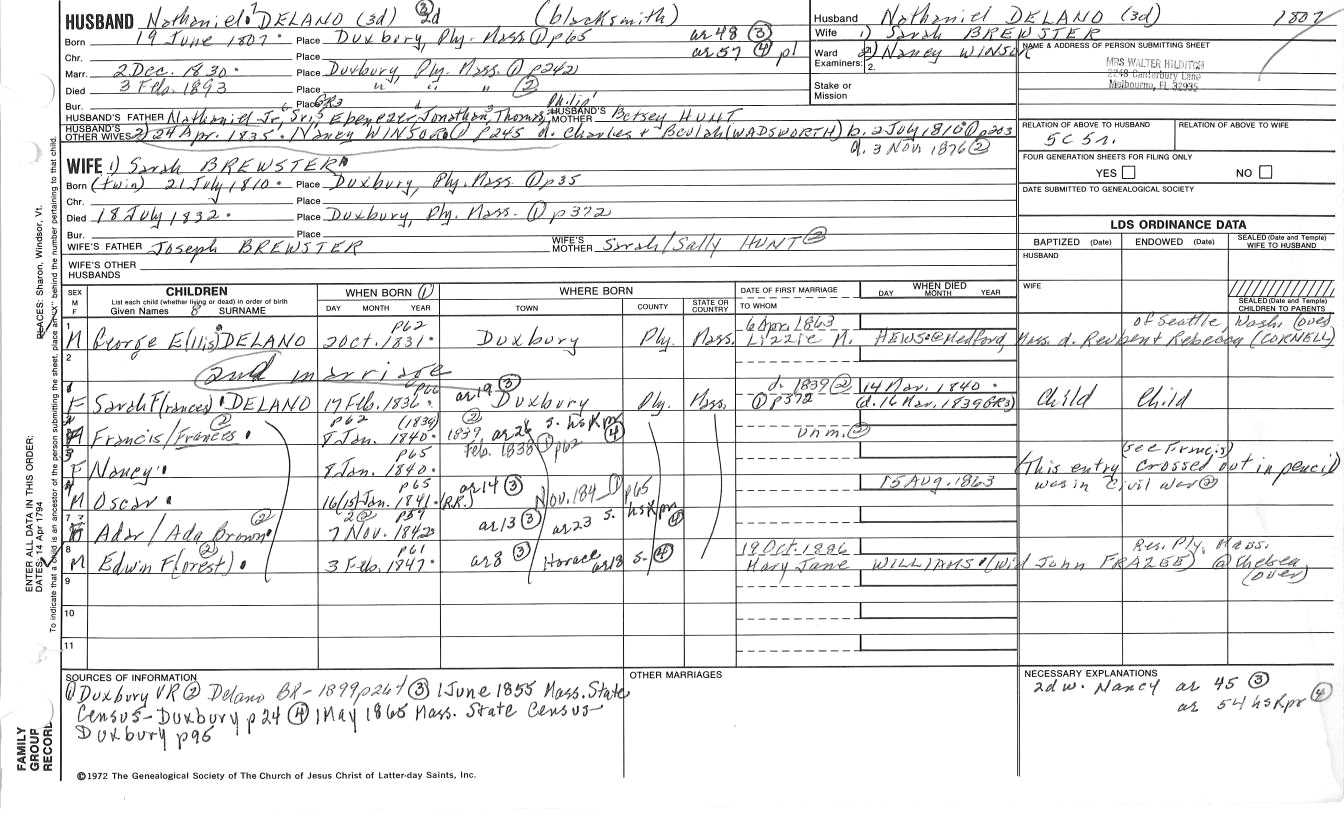 HUSBAND Nathaniel 7 DELANO (3d) ③ 2d (blacksmith)
Born 19 June 1807. Place Duxbury, Ply. Mass ① p65 ar 48 ③
Chr. Place ar 57 ④ p1
Marr. 2 Dec. 1830. Place Duxbury, Ply. Mass. ① p242
Died 3 Feb. 1893 Place " " " ②
Bur. Place GR3
HUSBAND'S FATHER Nathaniel Jr, 6 Sr, 5 Ebenezer, Jonathan, Thomas, Philip 1 HUSBAND'S MOTHER Betsey HUNT
HUSBAND'S OTHER WIVES 2) 24 Apr. 1835. Nancy WINSOR ① p245 d. Charles + Beulah (WADSWORTH) b. 2 July 1810 ① p203
d. 3 Nov 1876 ②
WIFE 1) Sarah BREWSTER
Born (twin) 21 July 1810. Place Duxbury, Ply. Mass. ① p35
Chr. Place
Died 18 July 1832. Place Duxbury, Ply. Mass. ① p372
Bur. Place
WIFE'S FATHER Joseph BREWSTER WIFE'S MOTHER Sarah/Sally HUNT ③
WIFE'S OTHER HUSBANDS
Husband Nathaniel DELANO (3d) 1807
Wife 1) Sarah BREWSTER
Ward 2) Nancy WINSOR
Examiners: 2.
Stake or Mission
NAME & ADDRESS OF PERSON SUBMITTING SHEET
MRS. WALTER HILDITCH
2248 Canterbury Lane
Melbourne, FL 32935
RELATION OF ABOVE TO HUSBAND RELATION OF ABOVE TO WIFE
5C 5r.
FOUR GENERATION SHEETS FOR FILING ONLY
YES NO
DATE SUBMITTED TO GENEALOGICAL SOCIETY
LDS ORDINANCE DATA
BAPTIZED (Date) ENDOWED (Date) SEALED (Date and Temple) WIFE TO HUSBAND
HUSBAND
WIFE
SEALED (Date and Temple) CHILDREN TO PARENTS
SEX M F CHILDREN WHEN BORN ① WHERE BORN DATE OF FIRST MARRIAGE WHEN DIED
List each child (whether living or dead) in order of birth
Given Names 8 SURNAME DAY MONTH YEAR TOWN COUNTY STATE OR COUNTRY TO WHOM DAY MONTH YEAR
1 p62 6 Apr. 1863 of Seattle, Wash. (over)
M George E(llis) DELANO 2 Oct. 1831. Duxbury Ply. Mass. Lizzie M. HEWS @ Medford, Mass. d. Reuben + Rebecca (CORNELL)
2 2nd marriage
p66 ar 19 ③ d. 1839 ② 14 Mar. 1840.
F Sarah F(rances) DELANO 17 Feb. 1836. Duxbury Ply. Mass. ① p372 (d. 16 Mar. 1839 GR3) Child Child
② p62 (1839) ② s. hskpr
Francis/Frances. 8 Jan. 1840. 1839 ar 26 ④ unm. ②
p65 Feb. 1838 ① p62 (see Francis)
F Nancy. 8 Jan. 1840. (This entry crossed out in pencil)
p65 ar 14 ③ 15 Aug. 1863 was in Civil War ②
M Oscar. 16(15) Jan. 1841. (RR.) Nov. 184_ ① p65
7 ② 2 ② p59 s. hskpr
Adar/Ada Brown. 7 Nov. 1842. ar 13 ③ ar 23 ④
8 ② p61 19 Oct. 1886 Res. Ply, Mass.
M Edwin F(orest). 3 Feb. 1847. ar 8 ③ Horace ar 18 s. ④ Mary Jane WILLIAMS. (Wid John FRAZEE) @ Chelsea (over)
9
10
11
SOURCES OF INFORMATION
① Duxbury VR ② Delano BR-1899 p267 ③ 1 June 1855 Mass. State
Census - Duxbury p 24 ④ 1 May 1865 Mass. State Census
Duxbury p95
OTHER MARRIAGES
NECESSARY EXPLANATIONS
2d w. Nancy ar 45 ③
ar 54 hskpr ④
©1972 The Genealogical Society of The Church of Jesus Christ of Latter-day Saints, Inc.
FAMILY GROUP RECORD
ENTER ALL DATA IN THIS ORDER:
DATES: 14 Apr 1794
PLACES: Sharon, Windsor, Vt.
To indicate that a child is an ancestor of the person submitting the sheet, place an "X" behind the number pertaining to that child.